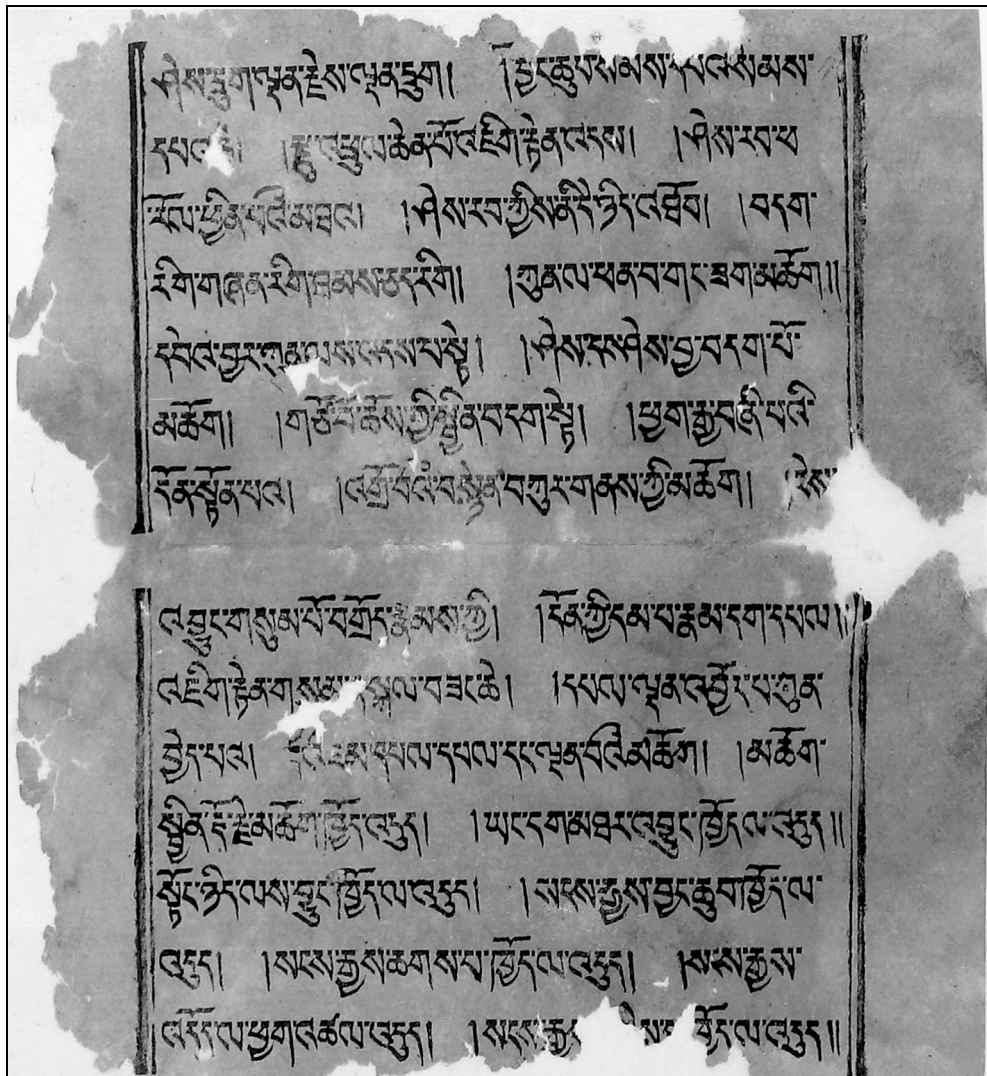 ཤེས་དྲུག་ལྡན་རྗེས་ལྡན་དྲུག། །བྱང་ཆུབ་སེམས་དཔའ་སེམས་
དཔའ །རྫུ་འཕྲུལ་ཆེན་པོ་འཇིག་རྟེན་འདས། །ཤེས་རབ་ཕ
རོལ་ཕྱིན་པའི་མཐའ། །ཤེས་རབ་ཀྱིས་ནི་དེ་ཉིད་འཐོབ། །བདག་
རིག་གཞན་རིག་ཐམས་ཅད་རིག། །ཀུན་ལ་ཕན་བ་གང་ཟག་མཆོག།།
དཔེའ་བྱར་ཀུན་ལས་འདས་པ་སྟེ། །ཤེས་དང་ཤེས་བྱ་བདག་པོ་
མཆོག། །གཙོ་བོ་ཆོས་ཀྱི་སྦྱིན་བདག་སྟེ། །ཕྱག་རྒྱ་བཞི་པའི་
དོན་སྟོན་པའ། །འགྲོ་བའི་བསྙེན་བཀུར་གནས་ཀྱི་མཆོག། །ངེས་
འབྱུང་གསུམ་པོ་བགྲོད་རྣམས་ཀྱི། །དོན་ཀྱི་དམ་པ་རྣམ་དག་དཔལ།།
འཇིག་རྟེན་གསུམ་ན་སྐལ་བཟང་ཆེ། །དཔལ་ལྡན་འབྱོར་པ་ཀུན་
བྱེད་པའ། དཔལ་དཔལ་དང་ལྡན་བའི་མཆོག། །མཆོག་
སྦྱིན་རྡོ་རྗེ་མཆོག་ཁྱོད་འདུད། །ཡང་དག་མཐར་འབྱུང་ཁྱོད་ལ་འདུད།།
སྟོང་ཉིད་ལས་བྱུང་ཁྱོད་ལ་འདུད། །སངས་རྒྱས་བྱང་ཆུབ་ཁྱོད་ལ་
འདུད། །སངས་རྒྱས་ཆགས་པ་ཁྱོད་ལ་འདུད། །སངས་རྒྱས་
འདོད་ལ་ཕྱག་འཚལ་འདུད། །སངས་རྒྱས་ ཁྱོད་ལ་འདུད།།